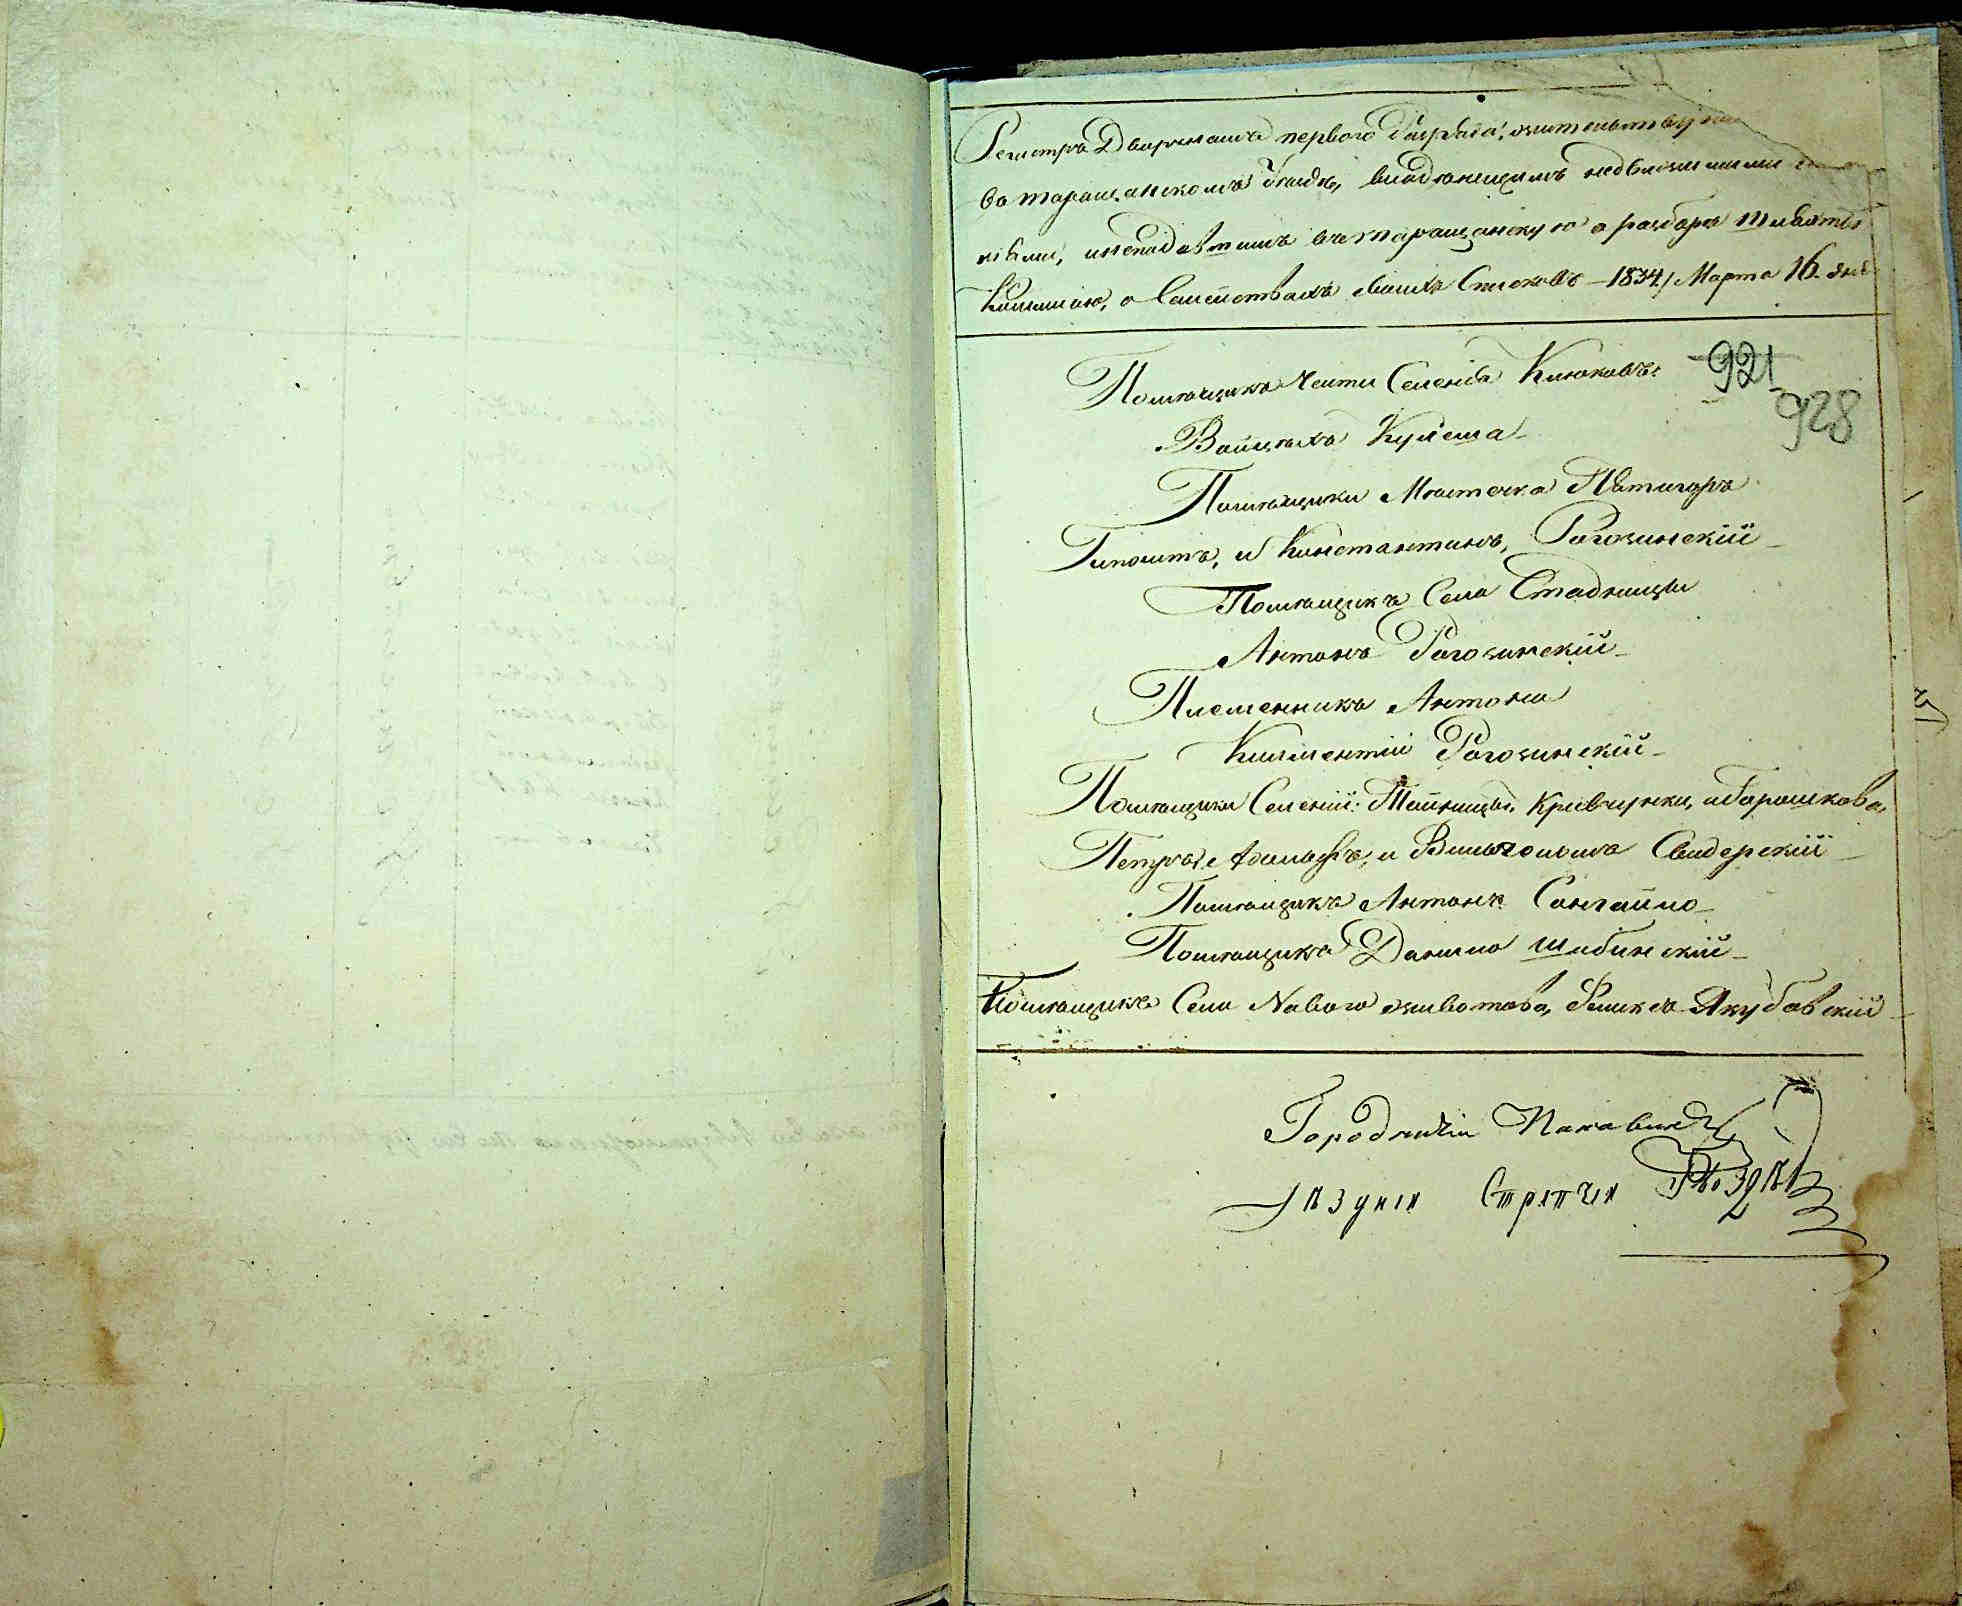 Регистръ Дворянамъ первого Разряда, жительствую
въ таращанскомъ Уѣздѣ, владѣющимъ недвижимыми
нѣями, инеподавшимъ вътаращанскую о разборѣ шляхты
Коммисію, о Семействахъ своихъ Списковъ – 1834 / Марта 16 дня
Помѣщикъ Части Селенія Клюковъ: 921
928
Войцѣхъ Кулеша –
Помѣщики Мѣстечка Пятигоръ
Гиполитъ, и Константинъ, Рогозинскій –
Помѣщикъ Села Стадницы
Антонъ Рогозинскій –
Племенникъ Антона
Климентій Рогозинскій –
Помѣщики Селеній: Тайницы, Кривчунки, иГорошкова,
Петръ, Адольфъ, и Вильгельмъ Свидерскій –
Помѣщикъ Антонъ Сонгайло –
Помѣщикъ Данило Шабинскій –
Помѣщикъ Села Нового животова, Феликсъ Якубовскій –
Городничій
уѣздный Стряпчій